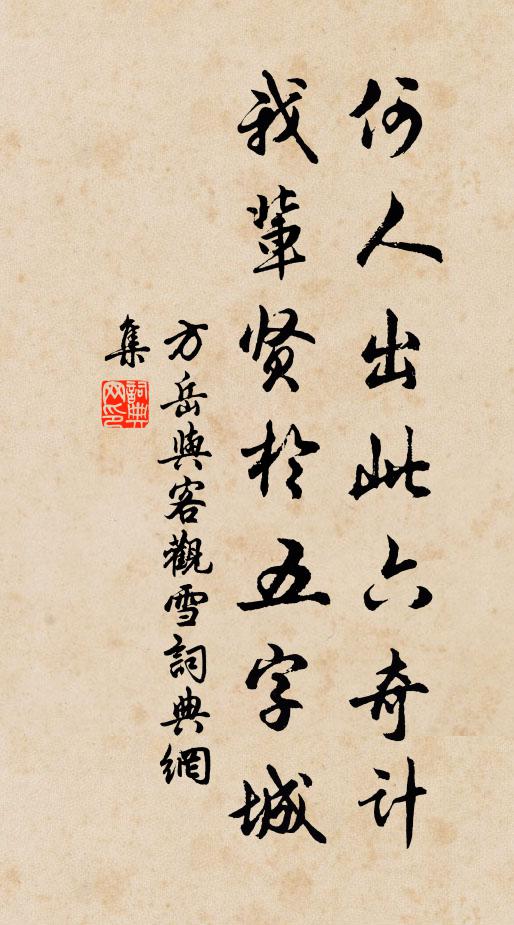 何人出此六奇计
我辈贤於五字城
方岳與客觀雪詞典網
集
詞典
网印